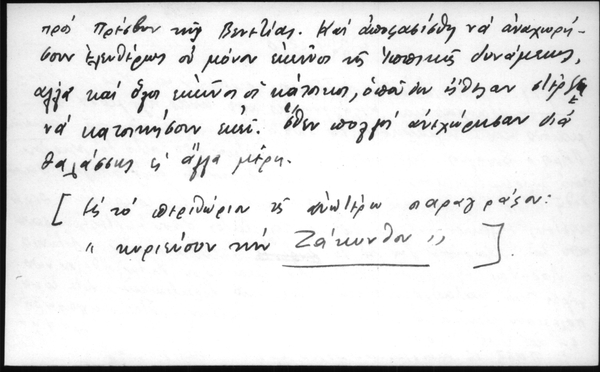 πρό Πρέσβυν της Βενετίας. Και απεφασίσθη να αναχωρή-
σουν ελευθέρως ου μόνον εκείνοι της ιππικής δυνάμεως,
αλλά και όλοι εκείνοι οι κάτοικοι, οπού δεν ήθελαν στέρξη
να κατοικήσουν εκεί. όθεν πολλοί ανεχώρησαν διά
θαλάσσης εις άλλα μέρη.
[ Εις το περιθώριον της ανωτέρω παραγράφου:
" κυριεύουν την Ζάκυνθον " ]